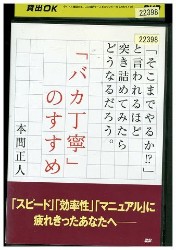 貸出OK
22396
22396
「そこまでやるか!?」
と言われるほど
突き詰めてみたら
どうなるだろう。
「バカ丁寧」
のすすめ
本間正人
「スピード」「効率性」「マニュアル」に
疲れきったあなたへ──